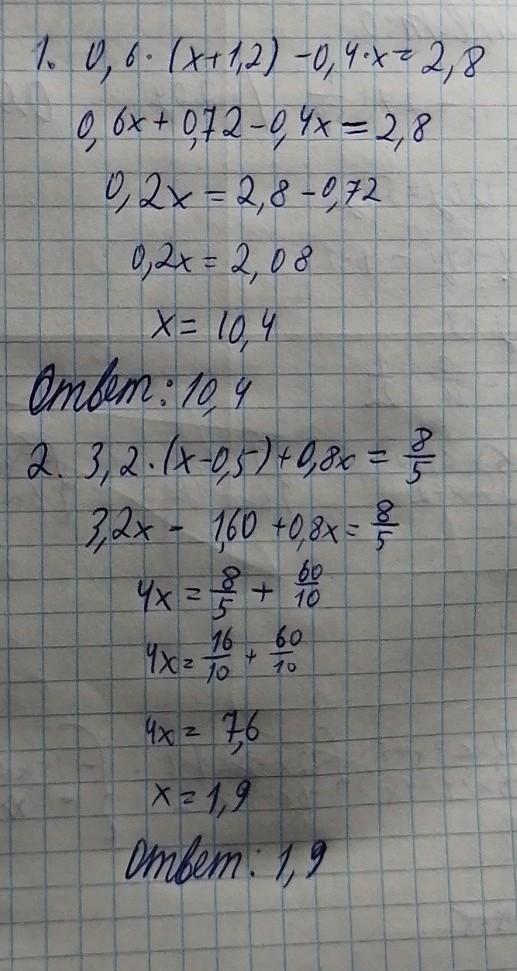 1. 0,6·(x+1,2)-0,4·x=2,8
0,6x+0,72-0,4x=2,8
0,2x=2,8-0,72
0,2x=2,08
x=10,4
Ответ: 10,4
2. 3,2·(x-0,5)+0,8x=8/5
3,2x-1,60+0,8x=8/5
4x=8/5+60/10
4x=16/10+60/10
4x=7,6
x=1,9
Ответ: 1,9